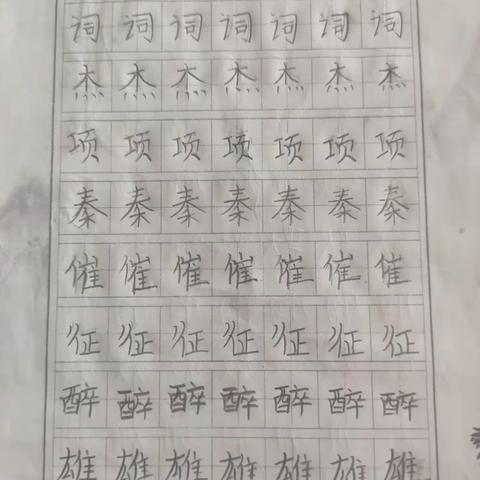 词 词 词 词 词 词 词
杰 杰 杰 杰 杰 杰 杰
项 项 项 项 项 项 项
秦 秦 秦 秦 秦 秦 秦
催 催 催 催 催 催 催
征 征 征 征 征 征 征
醉 醉 醉 醉 醉 醉 醉
雄 雄 雄 雄 雄 雄 雄